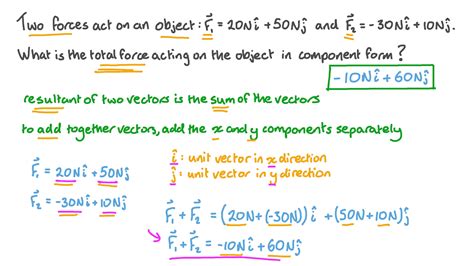 Two forces act on an object: F⃗₁ = 20Nî + 50Nĵ and F⃗₂ = -30Nî + 10Nĵ.
What is the total force acting on the object in component form?
-10Nî + 60Nĵ
resultant of two vectors is the sum of the vectors
to add together vectors, add the x and y components separately
î : unit vector in x direction
ĵ : unit vector in y direction
F⃗₁ = 20Nî + 50Nĵ
F⃗₂ = -30Nî + 10Nĵ
F⃗₁ + F⃗₂ = (20N + (-30N)) î + (50N + 10N) ĵ
F⃗₁ + F⃗₂ = -10Nî + 60Nĵ